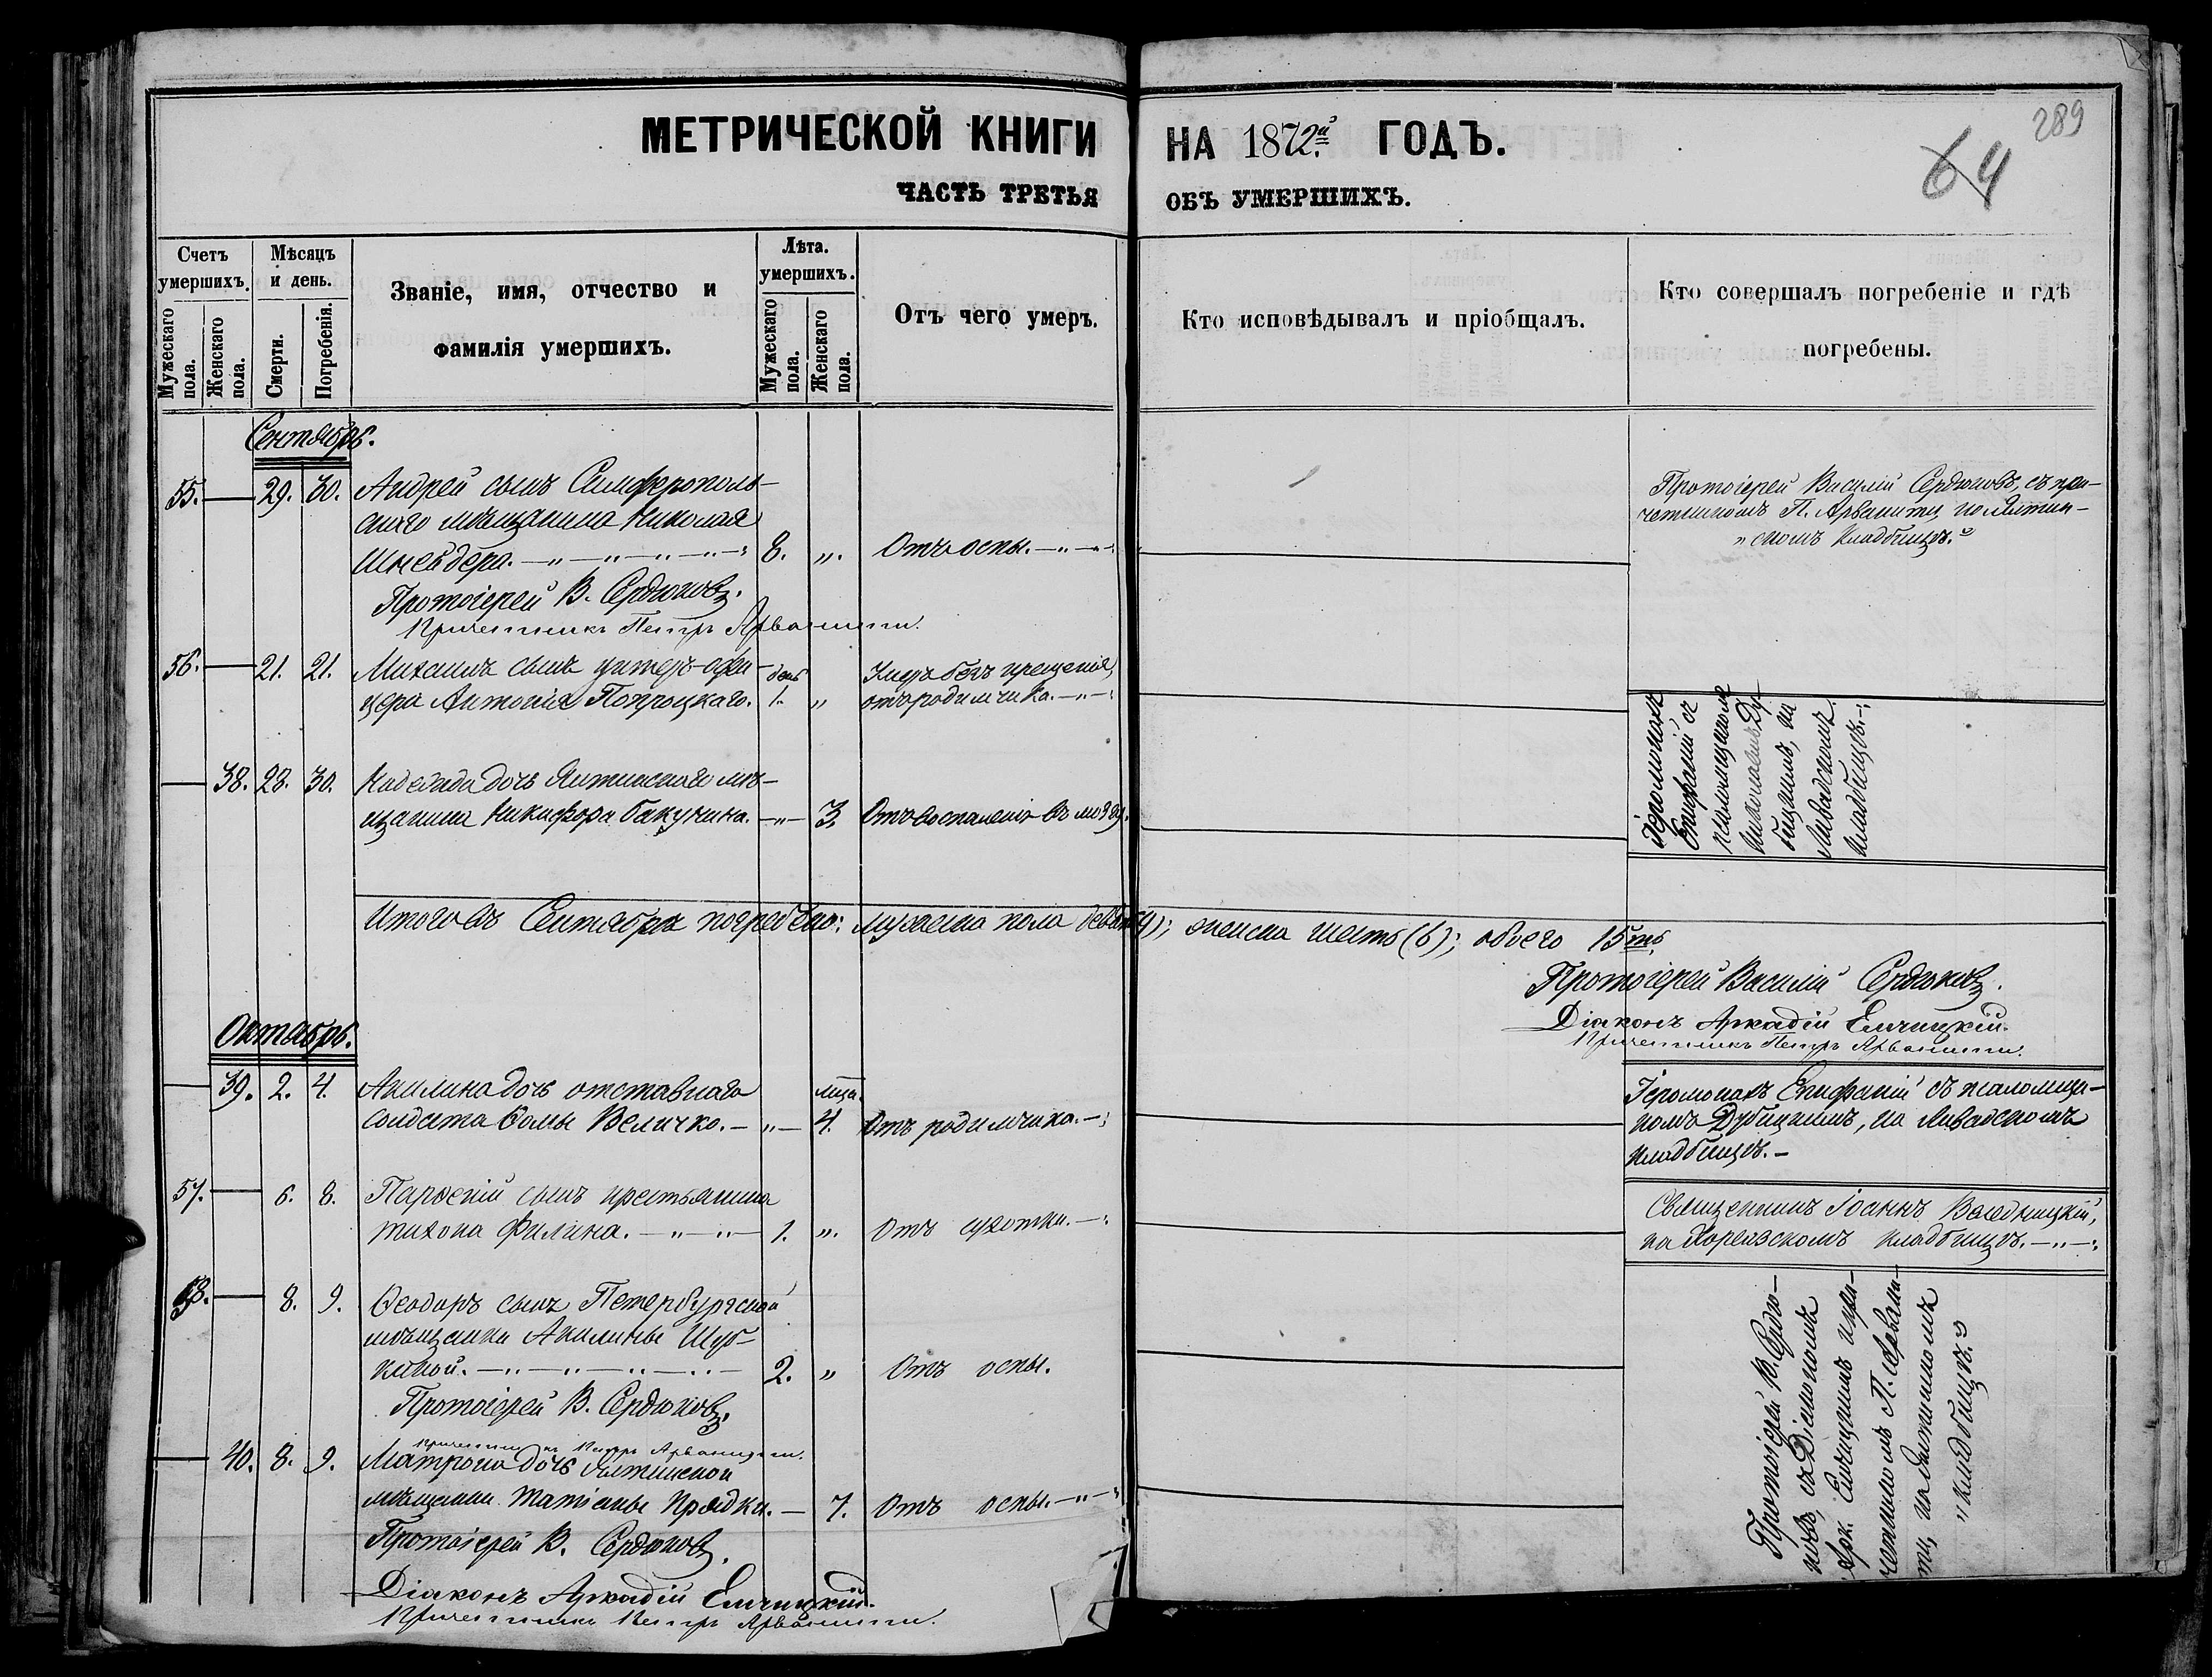 289
64
МЕТРИЧЕСКОЙ КНИГИ НА 1872й ГОДЪ.
ЧАСТЬ ТРЕТЬЯ ОБЪ УМЕРШИХЪ.
Счетъ умершихъ.
Мужескаго пола.
Женскаго пола.
Мѣсяцъ и день.
Смерти.
Погребенія.
Званіе, имя, отчество и
фамилія умершихъ.
Лѣта. умершихъ.
Мужескаго пола.
Женскаго пола.
Отъ чего умеръ.
Кто исповѣдывалъ и пріобщалъ.
Кто совершалъ погребеніе и гдѣ
погребены.
Сентябрь.
55. — 29. 30. Андрей сынъ Симферополь-
скаго мѣщанина Николая
Шнейдера. 8. „. Отъ оспы.
Протоіерей В. Сердюковъ.
Причетникъ Петръ Арванити.
Протоіерей Василій Сердюковъ, съ при-
четникомъ П. Арванити, на Ялтин-
„скомъ кладбищѣ.“
56. — 21. 21. Михаилъ сынъ унтеръ-офи-
цера Антонія Попроцкаго. день 1. „ Умеръ безъ крещенія,
отъ родимчика.
— 38. 28. 30. Надежда дочь Ялтинскаго мѣ-
щанина Никифора Бакунина. — 3. Отъ воспаленія въ мозгу.
Іеромонахъ
Епифаній съ
псаломщикомъ
Николаемъ Ду-
бицкимъ, на
Ливадскомъ
кладбищѣ.
Итого въ Сентябрѣ погребено: мужеска пола девять (9); женска шесть (6); обоего 15ть.
Протоіерей Василій Сердюковъ.
Діаконъ Аркадій Ельчицкій.
Причетникъ Петръ Арванити.
Октябрь.
— 39. 2. 4. Акилина дочь отставнаго
солдата Ѳомы Величко. — мѣца. 4. Отъ родимчика.
Іеромонахъ Епифаній съ псаломщи-
комъ Дубицкимъ, на Ливадскомъ
кладбищѣ.
57. — 6. 8. Парѳеній сынъ крестьянина
Тихона Филина. 1. „. Отъ сухотки.
Священникъ Іоаннъ
на Кореизскомъ кладбищѣ.
58. — 8. 9. Ѳеодоръ сынъ Петербургской
мѣщанки Акилины Шуб-
киной. 2. „ Отъ оспы.
Протоіерей В. Сердюковъ.
Причетникъ Петръ Арванити.
— 40. 8. 9. Матрона дочь Ялтинской
мѣщанки Татіаны Прядки. — 7. Отъ оспы.
Протоіерей В. Сердюковъ.
Діаконъ Аркадій Ельчицкій.
Причетникъ Петръ Арванити.
Протоіерей В. Сердю-
ковъ, съ Діакономъ
Арк. Ельчицкимъ и при-
четникомъ П. Арвани-
ти, на Ялтинскомъ
„кладбищѣ.“